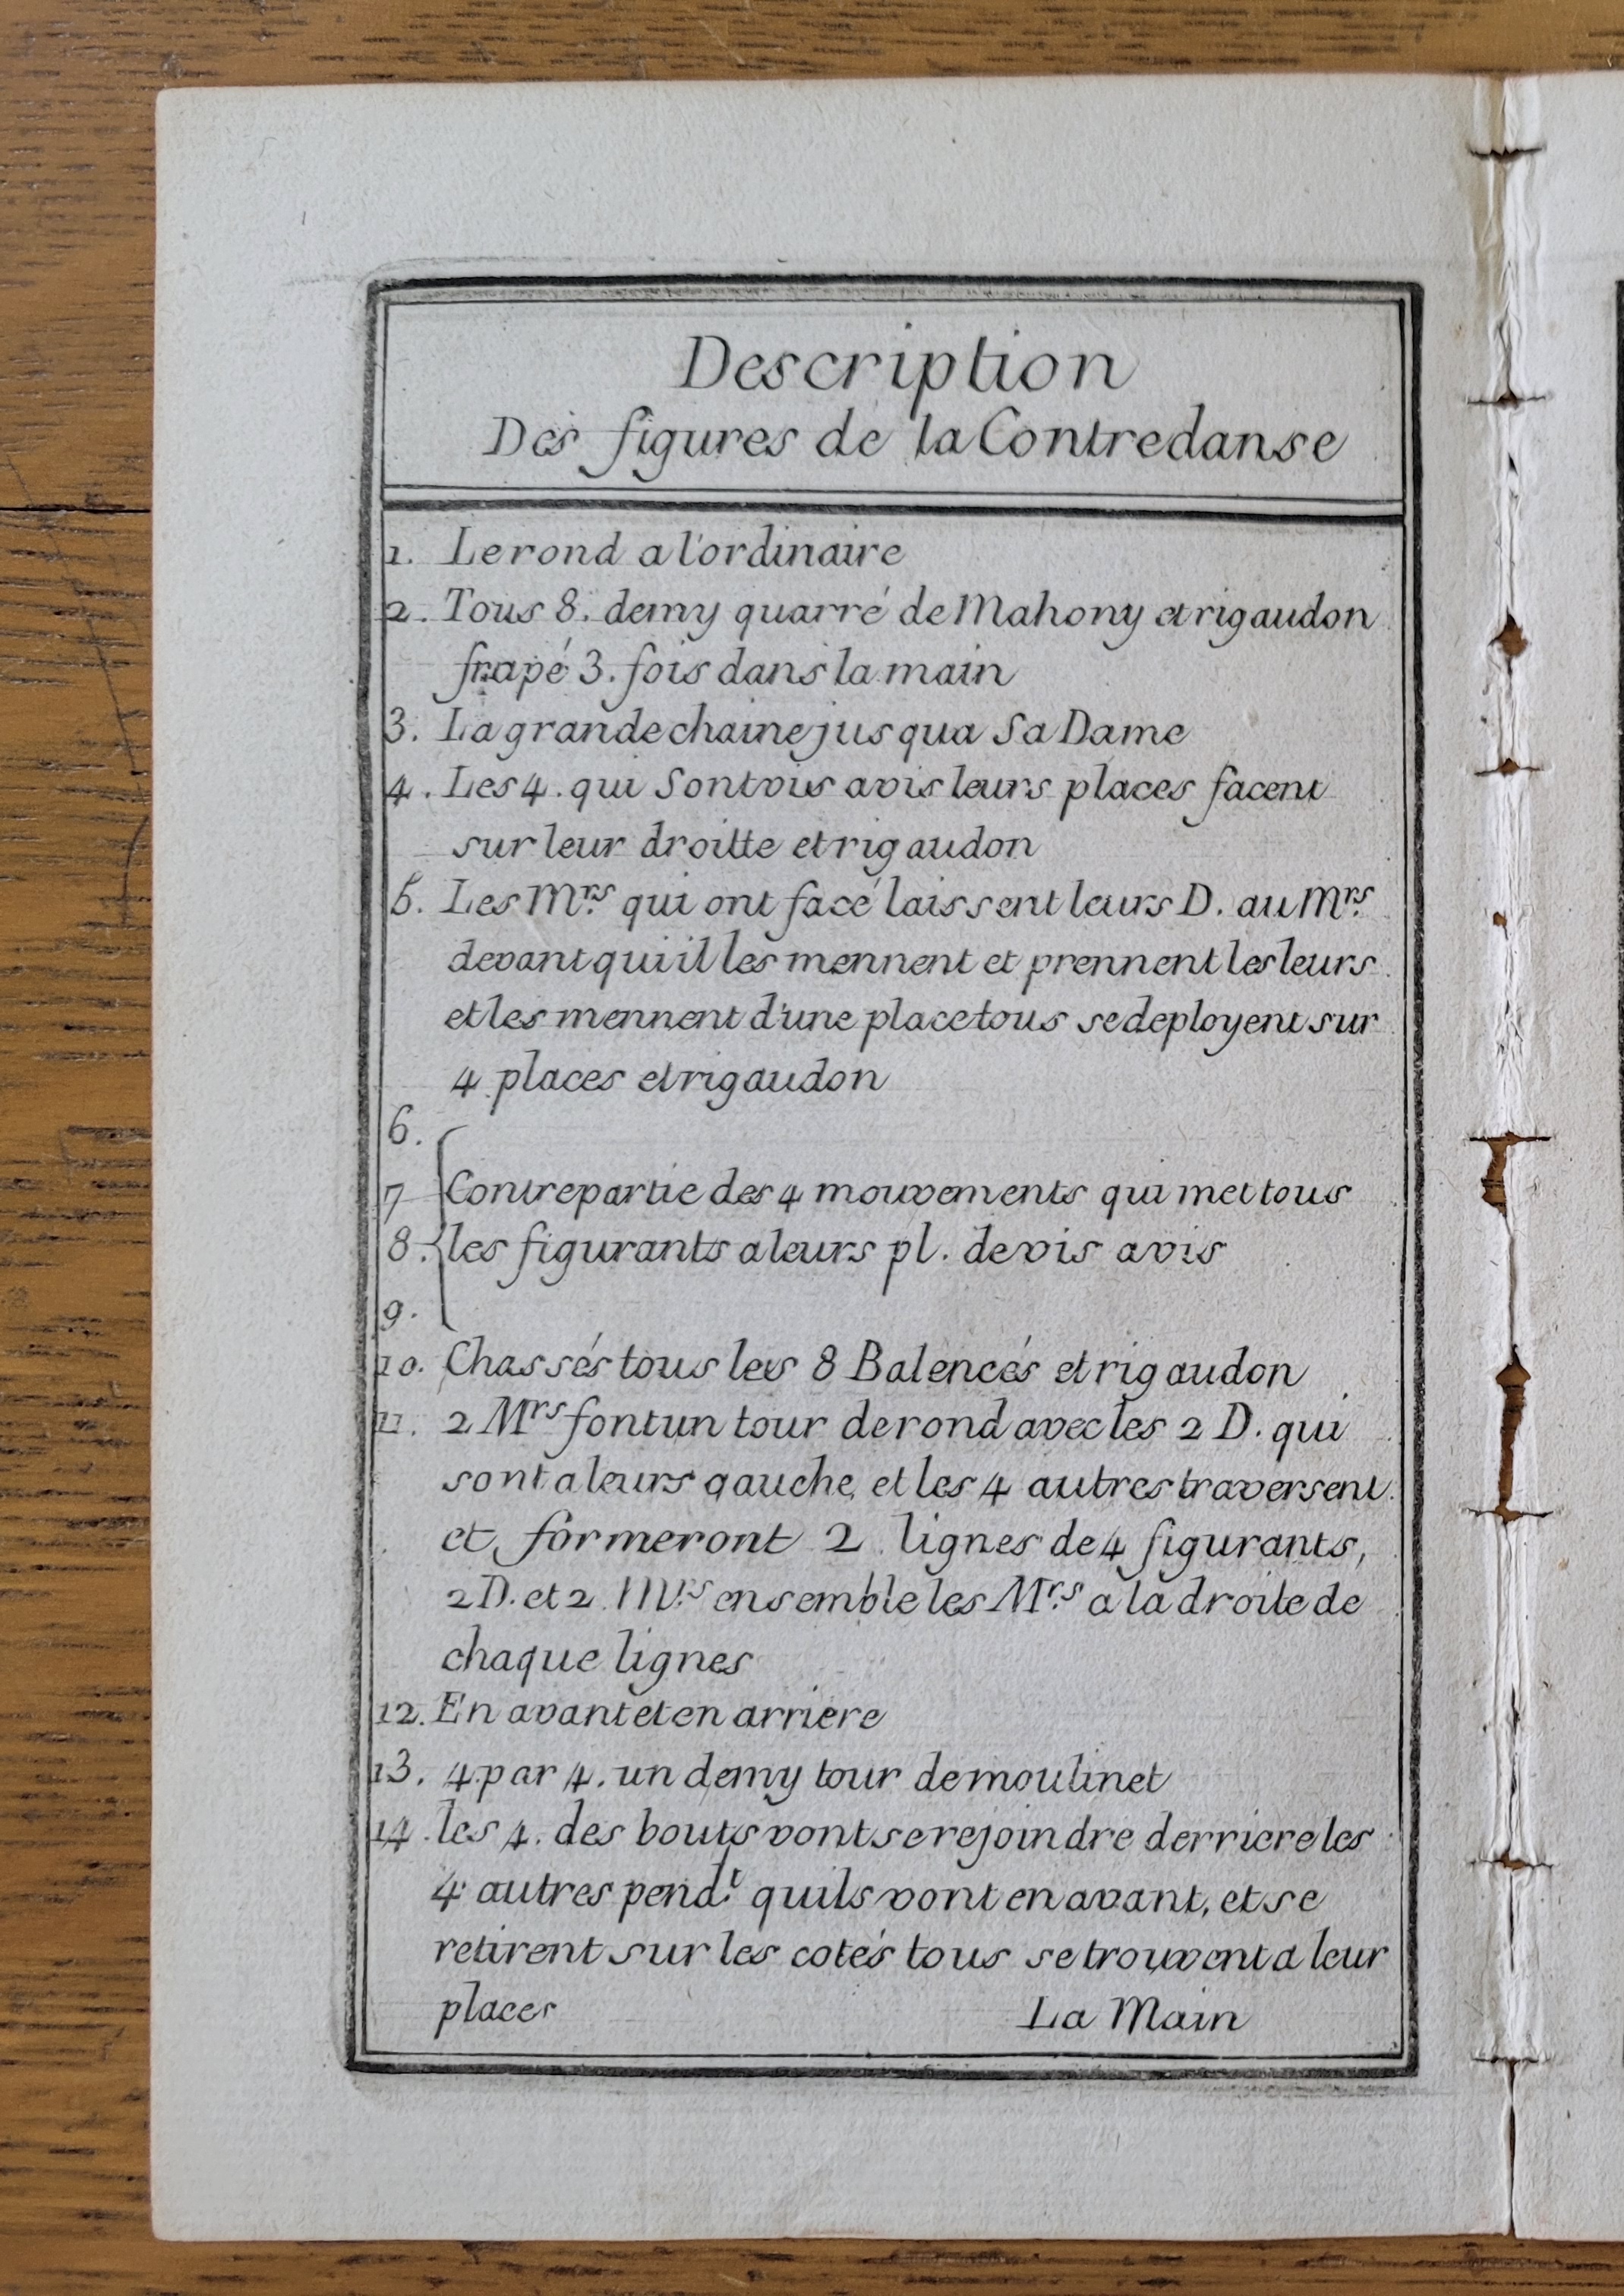 Description
Des figures de la Contredanse
1. Le rond a l'ordinaire
2. Tous 8. demy quarré de Mahony et rigaudon
frapé 3. fois dans la main
3. La grande chaine jusqua Sa Dame
4. Les 4. qui Sont vis avis leurs places facent
sur leur droitte et rigaudon
5. Les Mrs. qui ont facé laissent leurs D. au Mrs.
devant qui il les mennent et prennent les leurs
et les mennent d'une place tous se deployent sur
4 places et rigaudon
6.
7 Contrepartie des 4 mouvements qui met tous
8. les figurants a leurs pl. de vis avis
9.
10. Chassés tous les 8 Balencés et rigaudon
11. 2 Mrs font un tour de rond avec les 2 D. qui
sont a leurs gauche et les 4 autres traversent
et formeront 2 lignes de 4 figurants,
2 D. et 2 Mrs. ensemble les Mrs. a la droite de
chaque lignes
12. En avant et en arriere
13. 4 par 4. un demy tour de moulinet
14. les 4. des bouts vont se rejoindre derriere les
4 autres pendt. quils vont en avant, et se
retirent sur les cotés tous se trouvent a leur
places La Main